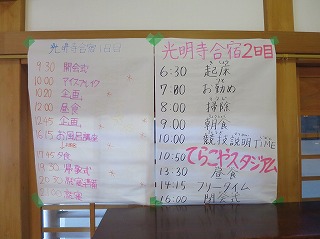 光明寺合宿1日目
9:30 開会式
10:00 アイスブレイク
10:20 企画
12:00 昼食
12:45 企画
16:15 お風呂講座
17:45 夕食
光明寺合宿2日目
6:30 起床
7:00 お勤め
8:00 掃除
9:00 朝食
10:00 競技説明TIME
10:50 てらこやスタジアム
13:30 昼食
14:15 フリータイム
16:00 閉会式